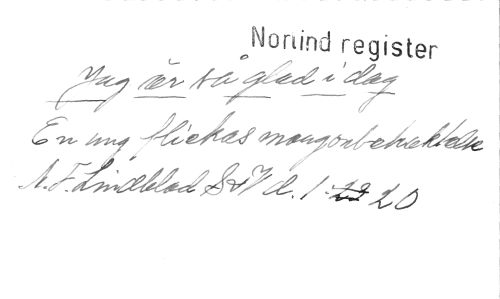 Norrlind register
Jag är så glad i dag
En ung flickas morgonbetraktelse
A. F. Lindblad S&V d. 1 22 20